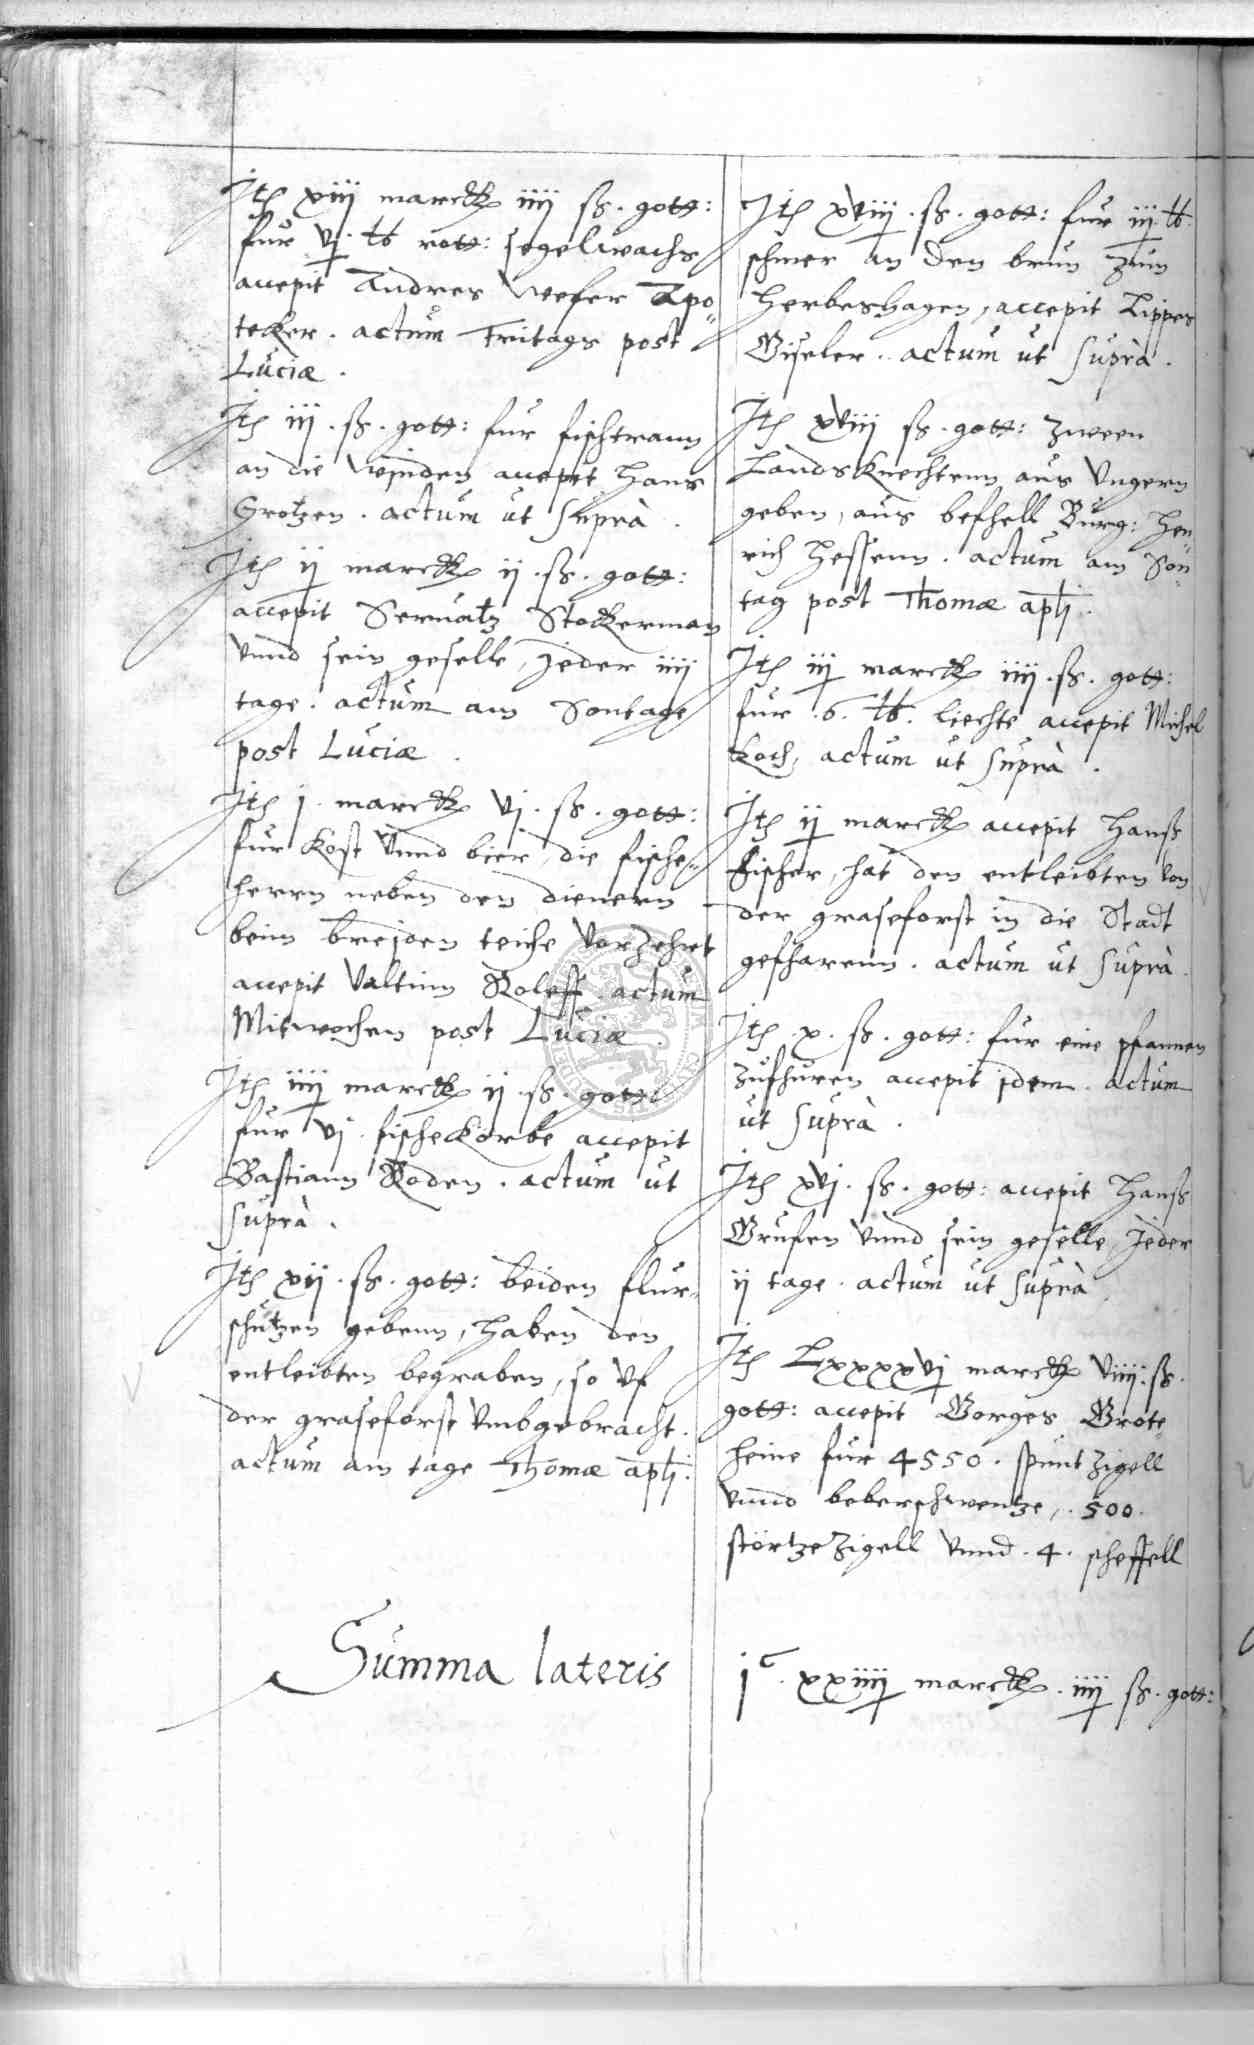 Itē xiij marckē iiij ß. gott:
fur vj. ℔ rott: segelwachs
accepit Andres Wefer Apo„
tecker. actum Fritags post
Luciæ.
Itē iij. ß. gott: fur fischtrann
an die winden accepit Hans
Grotzen. actum ut suprà.
Itē ij marckē ij. ß. gott:
accepit Seruatz Stockerman
vnnd sein geselle, jeder iiij
tage. actum am Sontage
post Luciæ.
Itē j. marckē vj. ß. gott:
fur kost vnnd bier, die fische„
herrn neben den dienern
beim breiden teiche vorzehrt
accepit Valtinn Roleff. actum
Mitwochen post Luciæ.
Itē iiij marckē ij. ß. gott:
fur vj. fischekorbe accepit
Bastiann Roden. actum ut
suprà.
Itē xij. ß. gott: beiden flur„
schutzen gebenn, haben den
entleibten begraben, so vf
der graseforst vmbgebracht.
actum am tage Thomæ apłi.
Itē xviij. ß. gott: fur iij. ℔.
schmer an den brun zum
Herbeshagen, accepit Lippes
Giseler.. actum ut suprà.
Itē xviij ß. gott: zween
Landsknechtenn aus Vngern
geben, aus befhell Burg: Hen„
rich Hessenn. actum am Son„
tag post Thomæ apłi.
Itē iij marckē iiij. ß. gott:
fur .6. ℔. liechte accepit Michel
Koch, actum ut suprà.
Itē ij marckē accepit Hanß
Fischer, hat den entleibten von
der graseforst in die Stadt
gefharenn. actum ut suprà.
Itē x. ß. gott: fur eine pfannen
zufhuren accepit idem. actum
ut suprà.
Itē xvj. ß. gott: accepit Hanß
Grufen vnnd sein geselle, Jeder
ij tage. actum ut suprà.
Itē Lxxxxvj marckē viiij. ß.
gott: accepit Gorges Grote„
heine fur 4550. spunt Zigell
vnnd beberschwentze, .500.
stortze Zigell vnnd .4. scheffell
Summa lateris jᶜ. xxiiij marckē. iiij ß. gott: